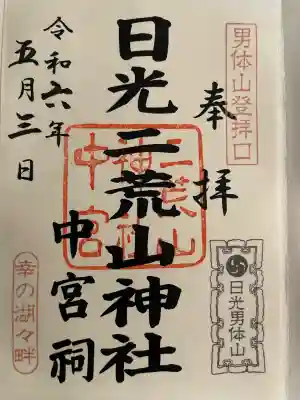 男体山登拝口
奉拝
日光二荒山神社
中宮祠
令和六年
五月三日
二荒山
神社
中宮
日光男体山
幸の湖々畔